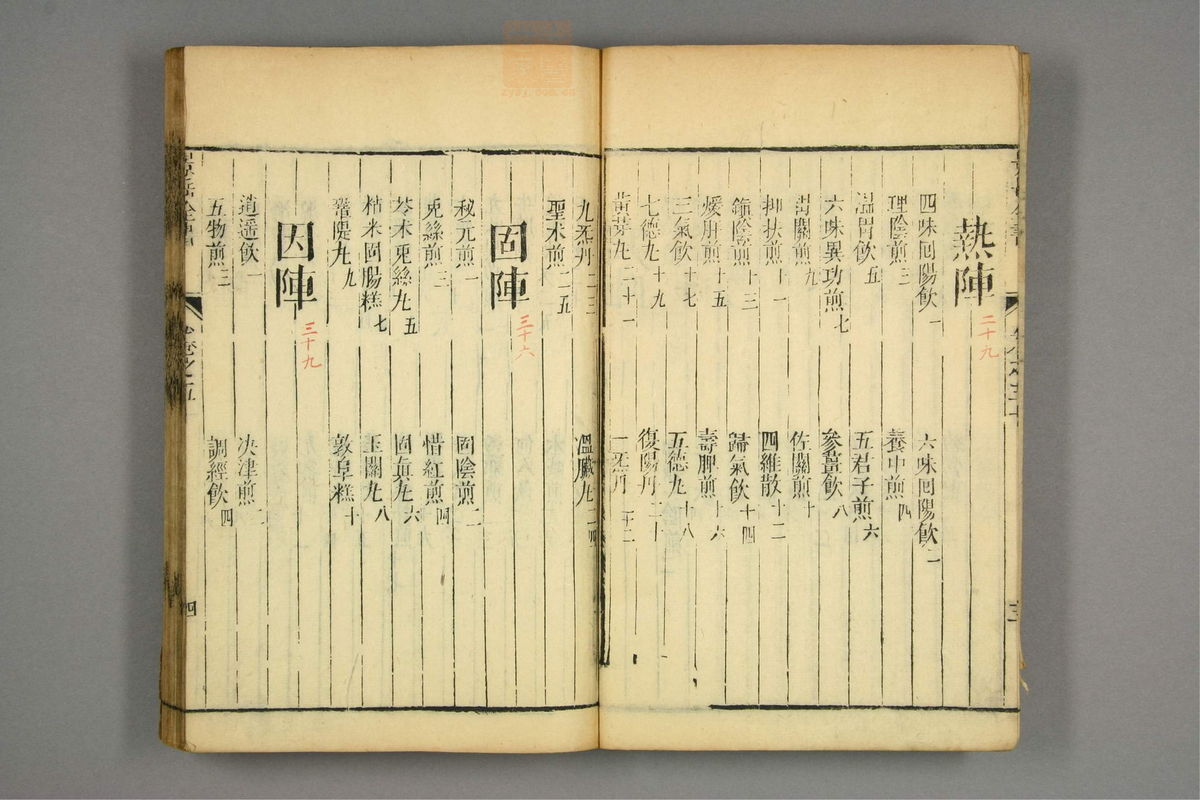 熱陣 二十九
四味回陽飲 一 六味回陽飲 二
理陰煎 三 養中煎 四
溫胃飲 五 五君子煎 六
六味異功煎 七 參薑飲 八
胃關煎 九 佐關煎 十
抑扶煎 十一 四維散 十二
鎮陰煎 十三 歸氣飲 十四
煖肝煎 十五 壽脾煎 十六
三氣飲 十七 五德丸 十八
七德丸 十九 復陽丹 二十
黃芽丸 二十一 一炁丹 二十二
九炁丹 二十三 溫臟丸 二十四
聖朮煎 二五
固陣 三十六
秘元煎 一 固陰煎 二
兎絲煎 三 惜紅煎 四
苓朮兎絲丸 五 固眞丸 六
粘米固腸糕 七 玉關丸 八
鞏隄丸 九 敦阜糕 十
因陣 三十九
逍遥飲 一 决津煎 二
五物煎 三 調經飲 四
景岳全書 卷之五 四